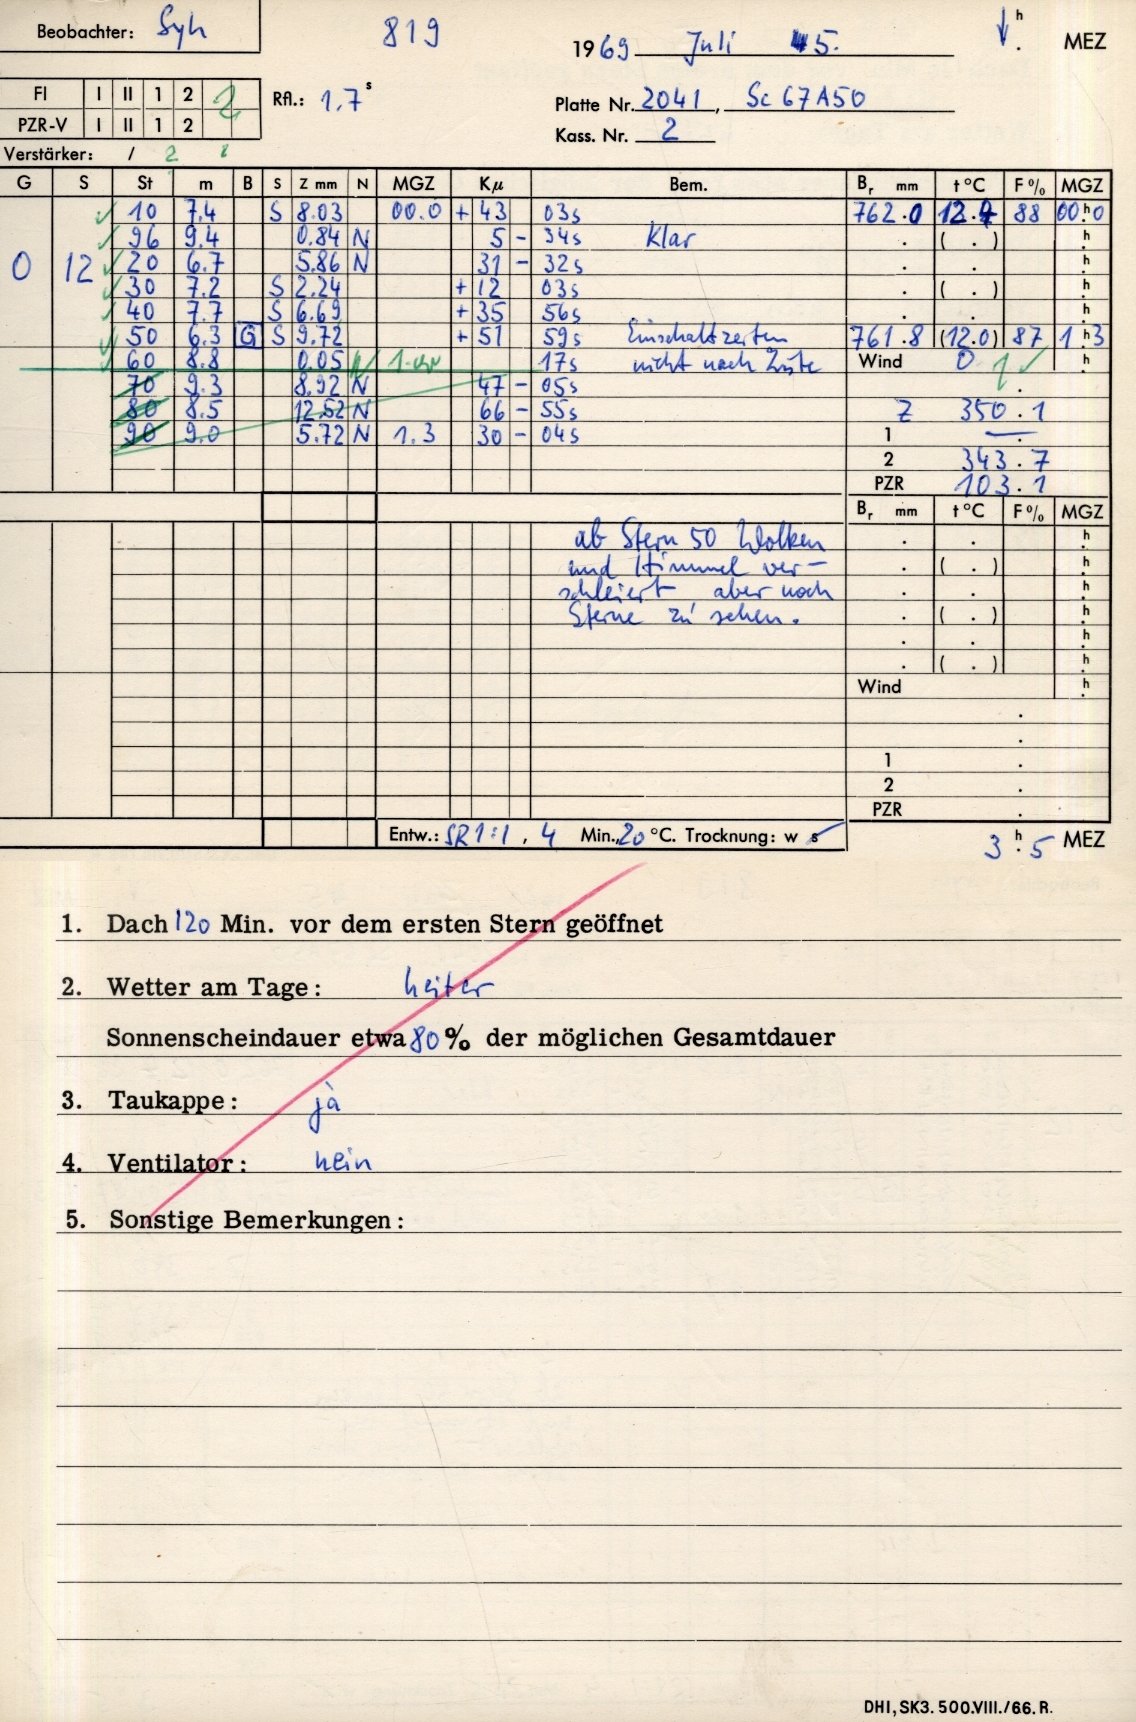 Beobachter: Syh 819 1969 Juli 5. h . MEZ
FI I II 1 2 2 Rfl.: 1,7 s Platte Nr. 2041, Sc 67A50
PZR-V I II 1 2 Kass. Nr. 2
Verstärker: / 2
G S St m B S Z mm N MGZ Kμ Bem. Br mm t °C F % MGZ
10 7.4 S 8.03 00.0 + 43 03s 762.0 12.4 88 00h0
96 9.4 0.84 N 5 - 34s Klar . ( . ) h
0 12 20 6.7 5.86 N 31 - 32s . . h
30 7.2 S 2.24 + 12 03s . ( . ) h
40 7.7 S 6.69 + 35 56s . . h
50 6.3 G S 9.72 + 51 59s Einschaltzeiten 761.8 (12.0) 87 1h3
60 8.8 0.05 N 17s nicht nach Liste Wind 0 h
70 9.3 8.92 N 47 - 05s .
80 8.5 12.52 N 66 - 55s Z 350.1
90 9.0 5.72 N 1.3 30 - 04s 1 — .
2 343.7
PZR 103.1
Br mm t °C F % MGZ
ab Stern 50 Wolken . . h
und Himmel ver- . ( . ) h
schleiert aber noch . . h
Sterne zu sehen. . ( . ) h
. . h
. ( . ) h
Wind h
.
.
1 .
2 .
PZR .
Entw.: SR 1:1 , 4 Min., 20 °C. Trocknung: w s 3 h 5 MEZ
1. Dach 120 Min. vor dem ersten Stern geöffnet
2. Wetter am Tage: heiter
Sonnenscheindauer etwa 80 % der möglichen Gesamtdauer
3. Taukappe: ja
4. Ventilator: nein
5. Sonstige Bemerkungen:
DHI, SK3. 500.VIII./66. R.